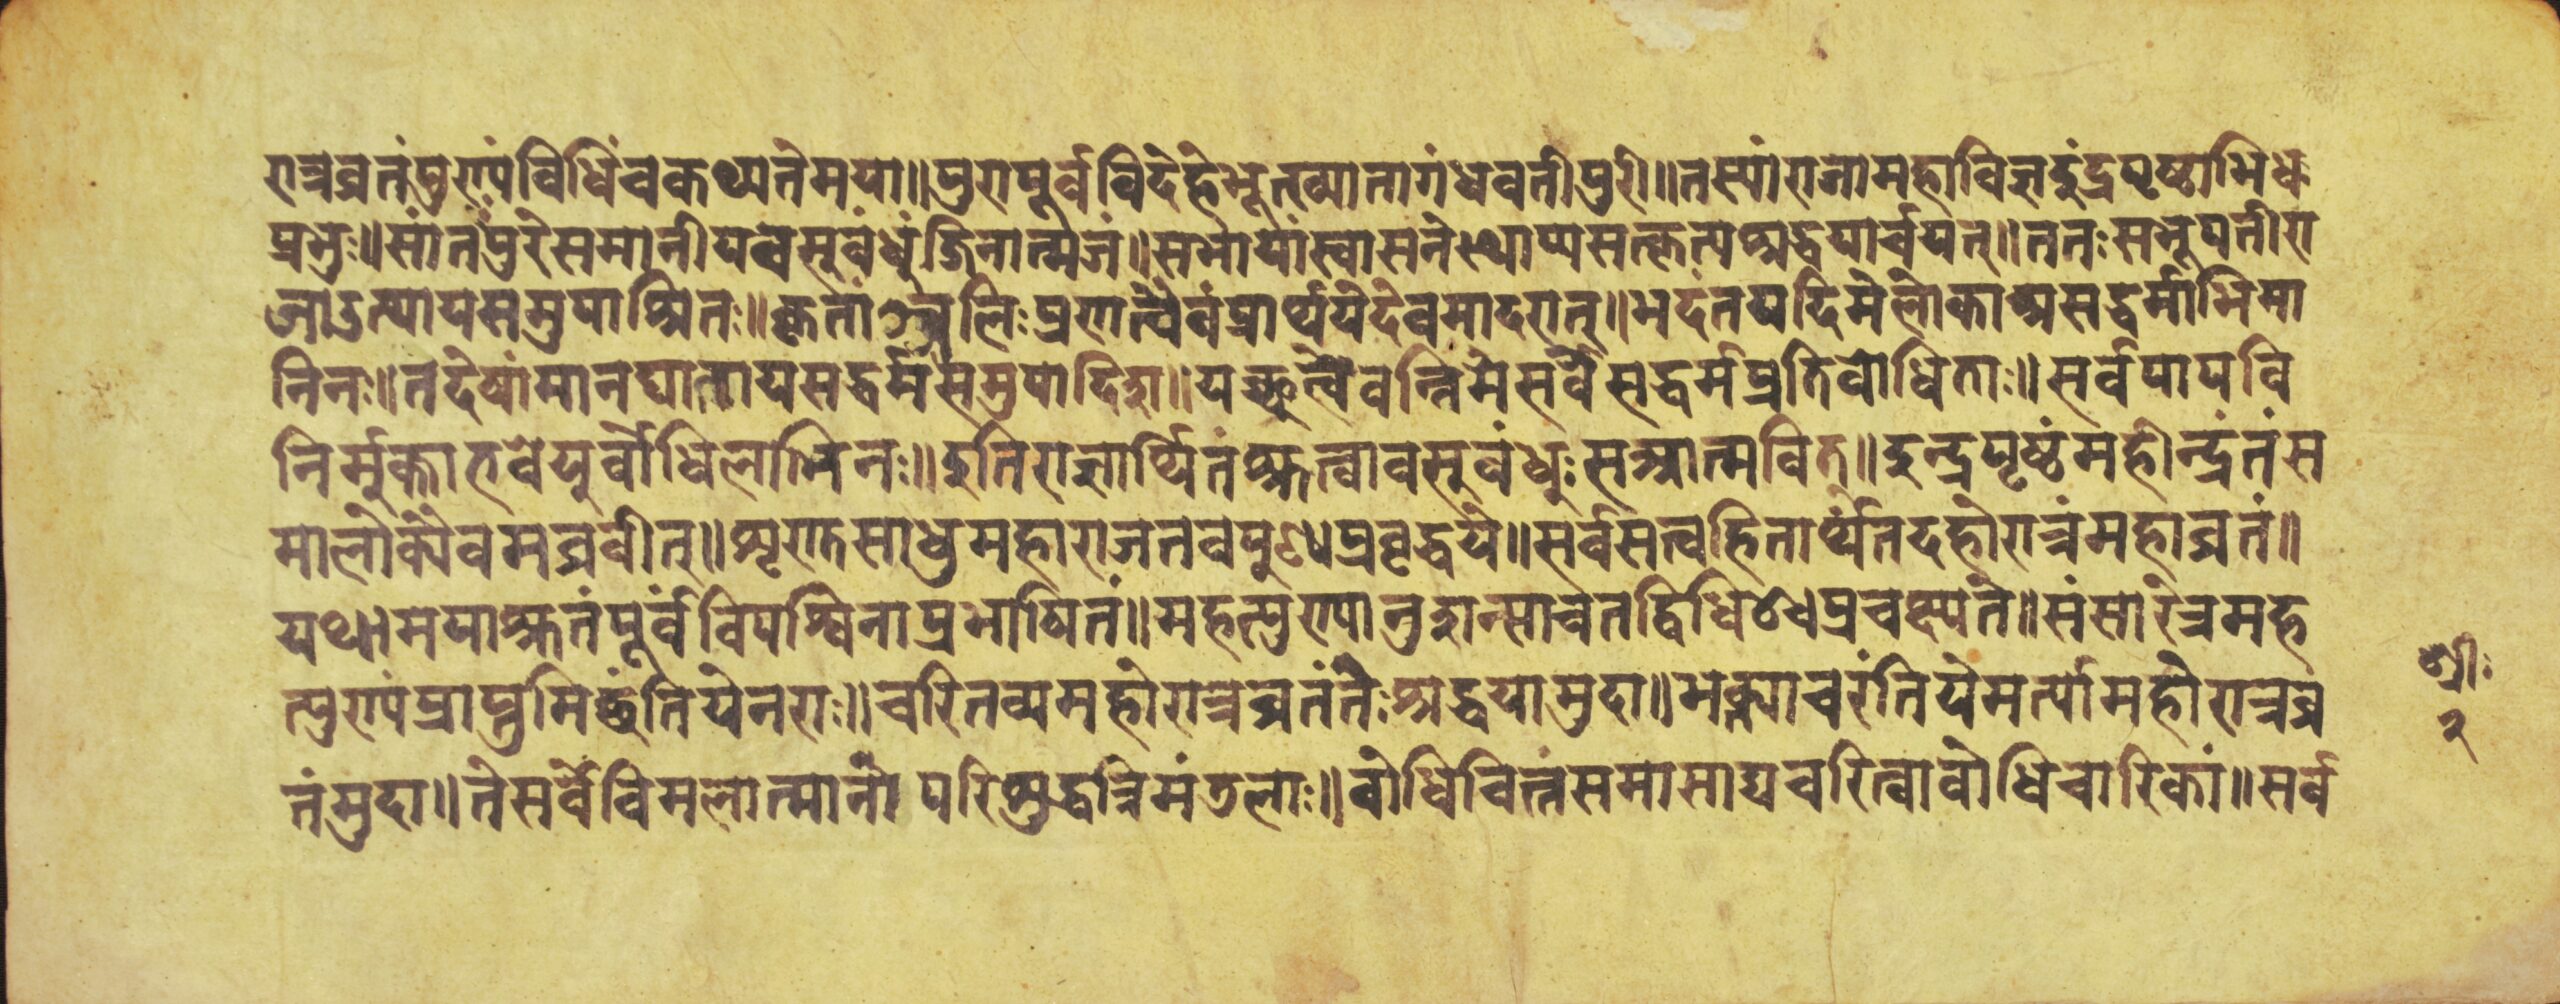 रात्रव्रतंपुराणंविधिंचकथ्यतेमया॥पुरापूर्वविदेहेभूत्ख्यातागंधवतीपुरी॥तस्यांराजामहाविज्ञइंद्रपृष्ठाभिधः
प्रभुः॥सांतःपुरेसमानीयत्वसुबंधुंजिनात्मजं॥सभायांस्वासनेस्थाप्यसत्कृत्यश्रद्धयार्चयत्॥ततःसभूपतीरा
जाऽत्थायसमुपाश्रितः॥कृतांञ्जलिःप्रणत्वैवंप्रार्थयेदेवमादरात्॥भदंतयदिमेलोकाअसद्धर्माभिमा
निनः॥तदेषांमानघातायसद्धर्मंसमुपादिश॥यच्छ्रुत्वैवन्निमेसर्वेसद्धर्मप्रतिबोधिताः॥सर्वपापवि
निर्मुक्ताभवेयुर्बोधिलाभिनः॥इतिराज्ञार्थितंश्रुत्वावसुबंधुःसआत्मवित्॥इन्द्रपृष्ठंमहीन्द्रंतंस
मालोक्यैवमब्रवीत्॥शृणुसाधुमहाराजतवपुण्यप्रवृद्धये॥सर्वसत्वहितार्थंतदहोरात्रंमहाव्रतं॥
यथामयाश्रुतंपूर्वंविपश्चिनाप्रभाषितं॥महत्पुण्यानुशान्साचतद्विधिश्चप्रचक्ष्यते॥संसारेत्रमह
त्पुण्यंप्राप्तुमिछंतियेनराः॥चरितव्यमहोरात्रव्रतंतैःश्रद्धयामुदा॥भक्त्याचरंतियेमर्त्यामहोरात्रव्र
तंमुदा॥तेसर्वेविमलात्मानो परिशुद्धत्रिमंडलाः॥बोधिचित्तंसमासाद्यचरित्वाबोधिचारिकां॥सर्व
श्रीः
२